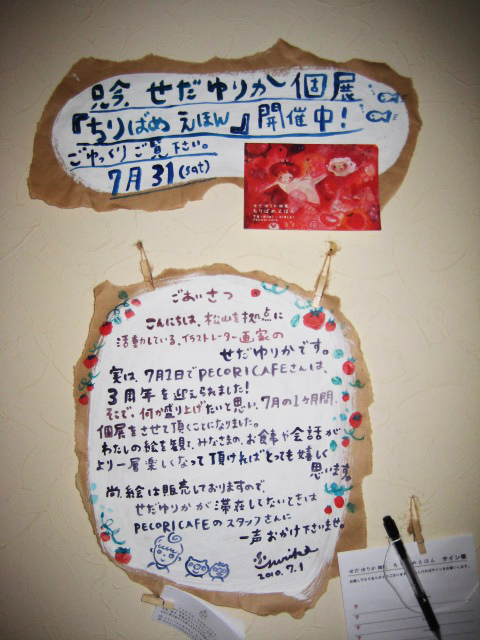 只今 せだゆりか 個展
『ちりばめ えほん』開催中!
ごゆっくりご覧下さい。
7月31(sat)
せだゆりか個展
ちりばめえほん
ごあいさつ
こんにちは、松山を拠点に
活動している、イラストレーター画家の
せだゆりかです。
実は、7月1日でPECORICAFEさんは、
3周年を迎えられました!
そこで、何か盛り上げたいと思い、7月の1ヶ月間、
個展をさせて頂くことになりました。
わたしの絵を観て、みなさまの、お食事や会話が
より一層楽しくなって頂ければとっても嬉しく
思います。
尚、絵は販売しておりますので、
せだゆりかが滞在しないときは
PECORICAFEのスタッフさんに
一声おかけ下さいませ。
2010.7.1
せだゆりか個展 ちりばめえほん サイン帳